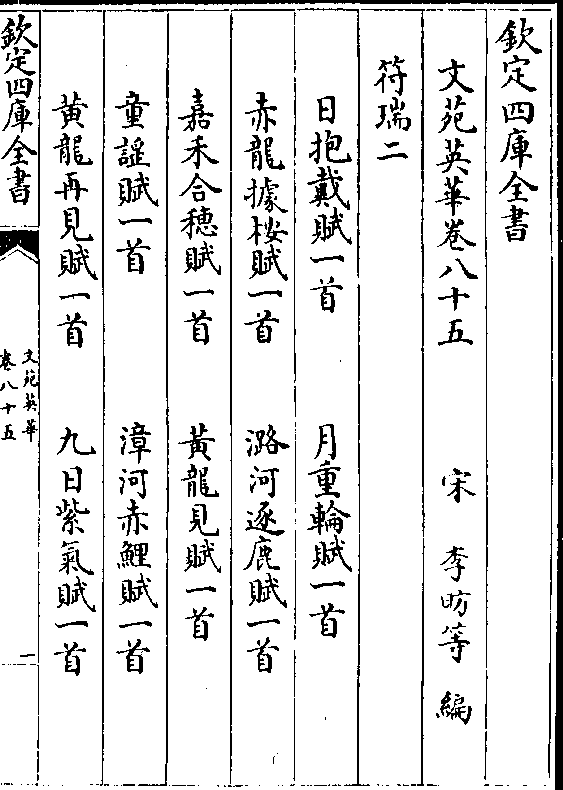 欽定四庫全書
文苑英華卷八十五 宋 李昉等 編
符瑞二
日抱戴賦一首 月重輪賦一首
赤龍據桉賦一首 潞河逐鹿賦一首
嘉禾合穗賦一首 黃龍見賦一首
童謡賦一首 漳河赤鯉賦一首
黃龍再見賦一首 九日紫氣賦一首
欽定四庫全書
文苑英華
卷八十五
一